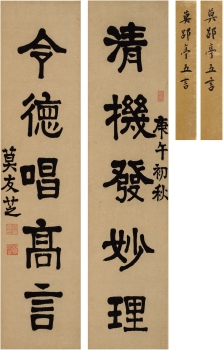 清機發妙理
庚午初秋
令德唱高言
莫友芝
莫郘亭五言
莫郘亭五言